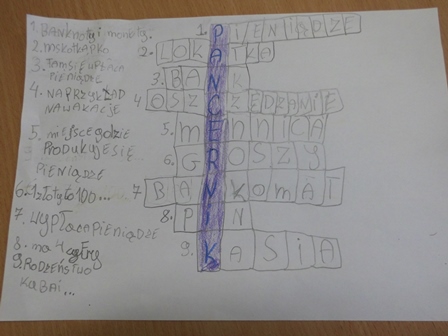 1. BANKNOTy i monety.
2. mSKOTKAPKO
3. TAMSIĘWPŁACA
PIENIĄDZE
4. NAPRZYKŁAD
NAWAKACJE
5. miEJSCEGDZIE
PRODUKUJESIĘ
PIENIĄDZE
6. 1ZŁOTYTO100...
7. WYPŁACAPIENIĄDZE
8. ma 4 cyfry
9. RODZEŃSTWO
KUBAI...
1. PIENIĄDZE
2. LOKATKA
3. BANK
4 OSZCZĘDZANIE
5. mEnnICA
6. GROSZY
7 BANKOmAT
8. PIN
9. KASIA